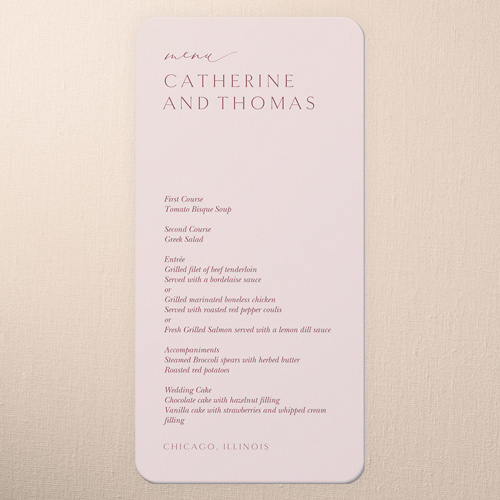 menu
CATHERINE
AND THOMAS
First Course
Tomato Bisque Soup
Second Course
Greek Salad
Entrée
Grilled filet of beef tenderloin
Served with a bordelaise sauce
or
Grilled marinated boneless chicken
Served with roasted red pepper coulis
or
Fresh Grilled Salmon served with a lemon dill sauce
Accompaniments
Steamed Broccoli spears with herbed butter
Roasted red potatoes
Wedding Cake
Chocolate cake with hazelnut filling
Vanilla cake with strawberries and whipped cream
filling
CHICAGO, ILLINOIS